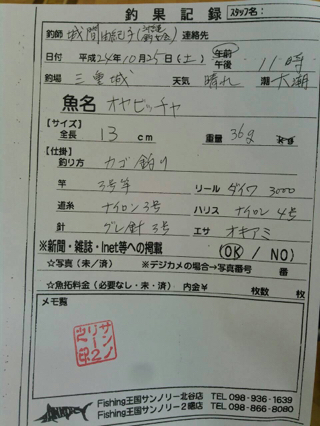 釣果記録 スタッフ名：
釣師 城間由紀子 連絡先
日付 平成24年10月25日(土) 午前 午後 11時
釣場 三重城 天気 晴れ 潮 大潮
魚名 オヤビッチャ
【サイズ】
全長 13 cm 重量 36g
【仕掛】
釣り方 カゴ釣り
竿 3号竿 リール ダイワ 3000
道糸 ナイロン3号 ハリス ナイロン 4号
針 グレ針3号 エサ オキアミ
※新聞・雑誌・Inet等への掲載 (OK / NO)
☆写真（未／済） ※デジカメの場合→写真番号 番
☆魚拓料金（必要なし・未・済） 内金￥ 枚数 枚
メモ覧
サンノリー2之印
Fishing王国サンノリー北谷店 TEL 098-936-1639
Fishing王国サンノリー2曙店 TEL 098-866-8080